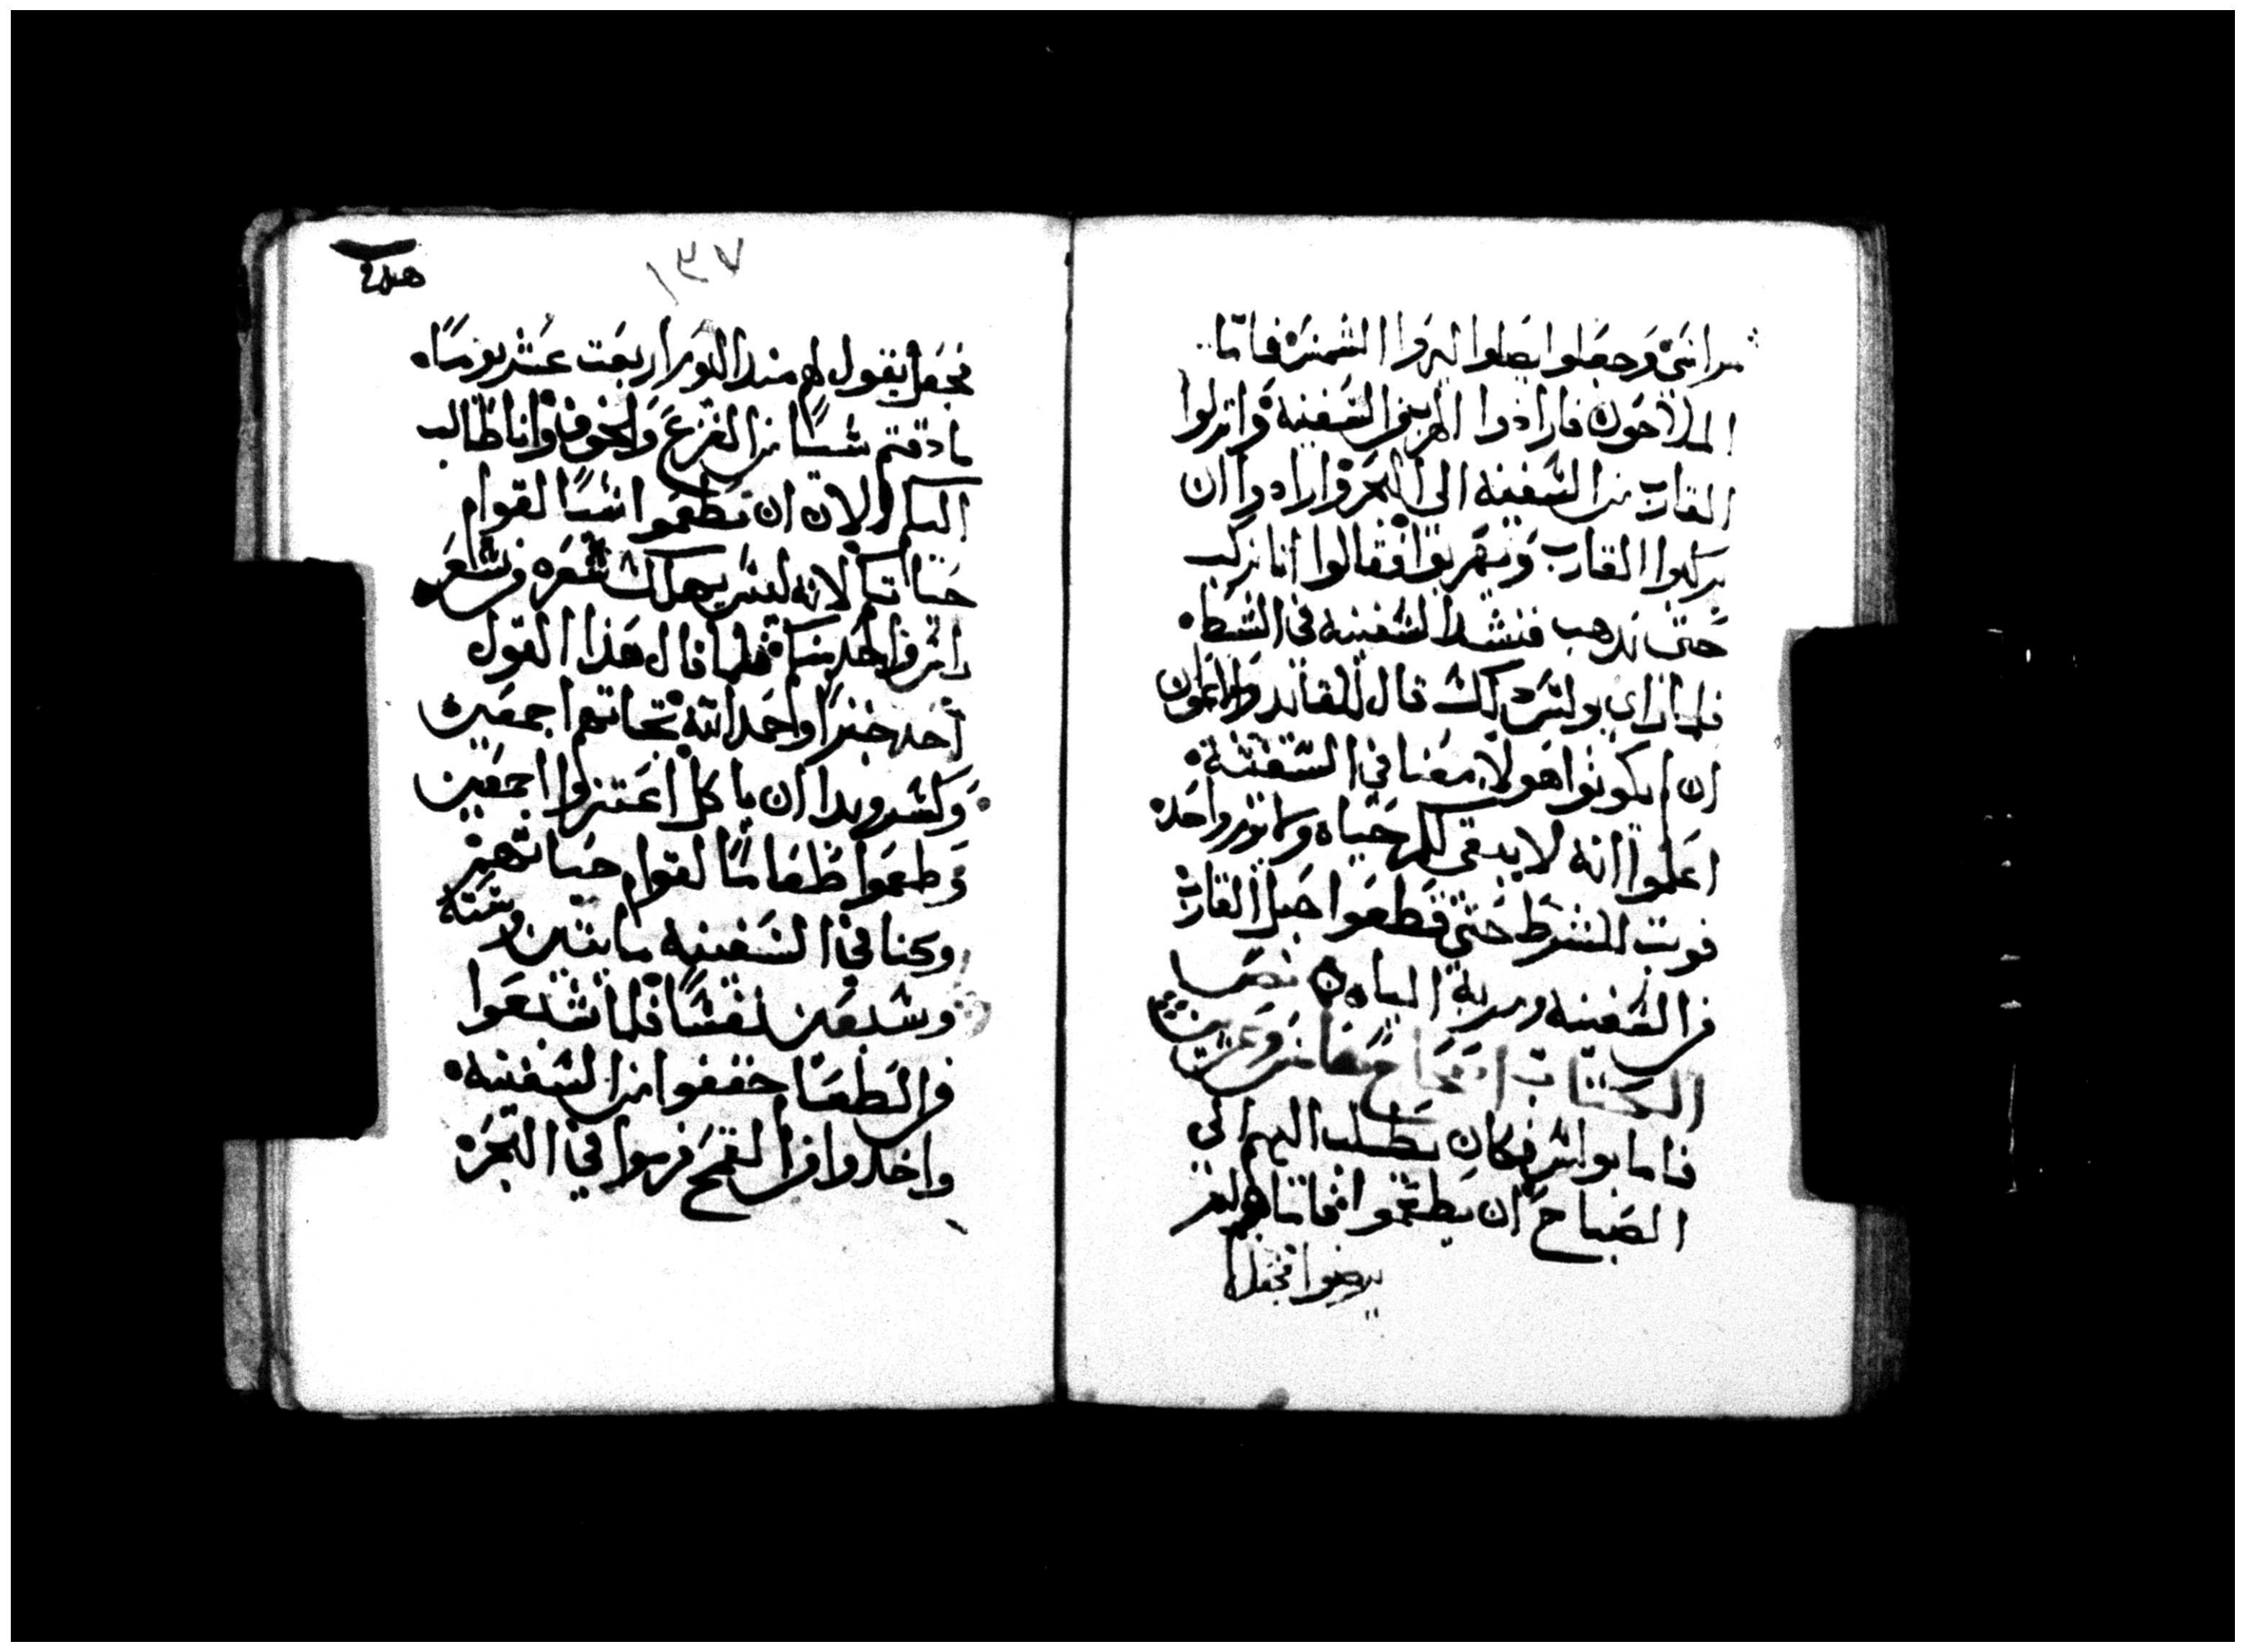 مراسي وجعلوا يصلوا اليروا الشمس فاما
الملاحون فارادوا الهرب من السفينه وانزلوا
القارب من السفينه الى البحر وارادوا ان
يركبوا القارب ويهربوا فقالوا انا نركب
حتى نذهب فنشد السفينه في الشط
فلما راي بولس ذلك قال للقايد والاعوان
ان لم يكونوا هولا معنا في السفينة
اعلموا انه لا يبقى لكم حياه واحده
فوتب للشرط حتى قطعوا حبل القارب
من السفينه الياه نصف
الكتاب
فاما بولس فكان يطلب اليهم الى
الصباح ان يطعموا فاما هم لم
يرضوا فجعل
١٣٧
فجعل يقول لهم منذ اليوم اربعت عشر يوما
ما دقتم شيئا من الفزع والخوف وانا طالب
اليكم الان ان تطعموا شيئا لقوام
حياتكم لانه ليس يهلك شعره من شعر
راس واحد منكم فلما قال هذا القول
أخد خبزا واحمد الله تجاههم اجمعين
وكسر وبدا ان ياكل اعتزوا اجمعين
وطعموا طعاما لقوام حياتهم
وكنا في السفينه مايتين وسته
وسبعين نفسا فلما شبعوا
من الطعام خففوا من السفينه
واخدوا من القمح فرموا في البحر